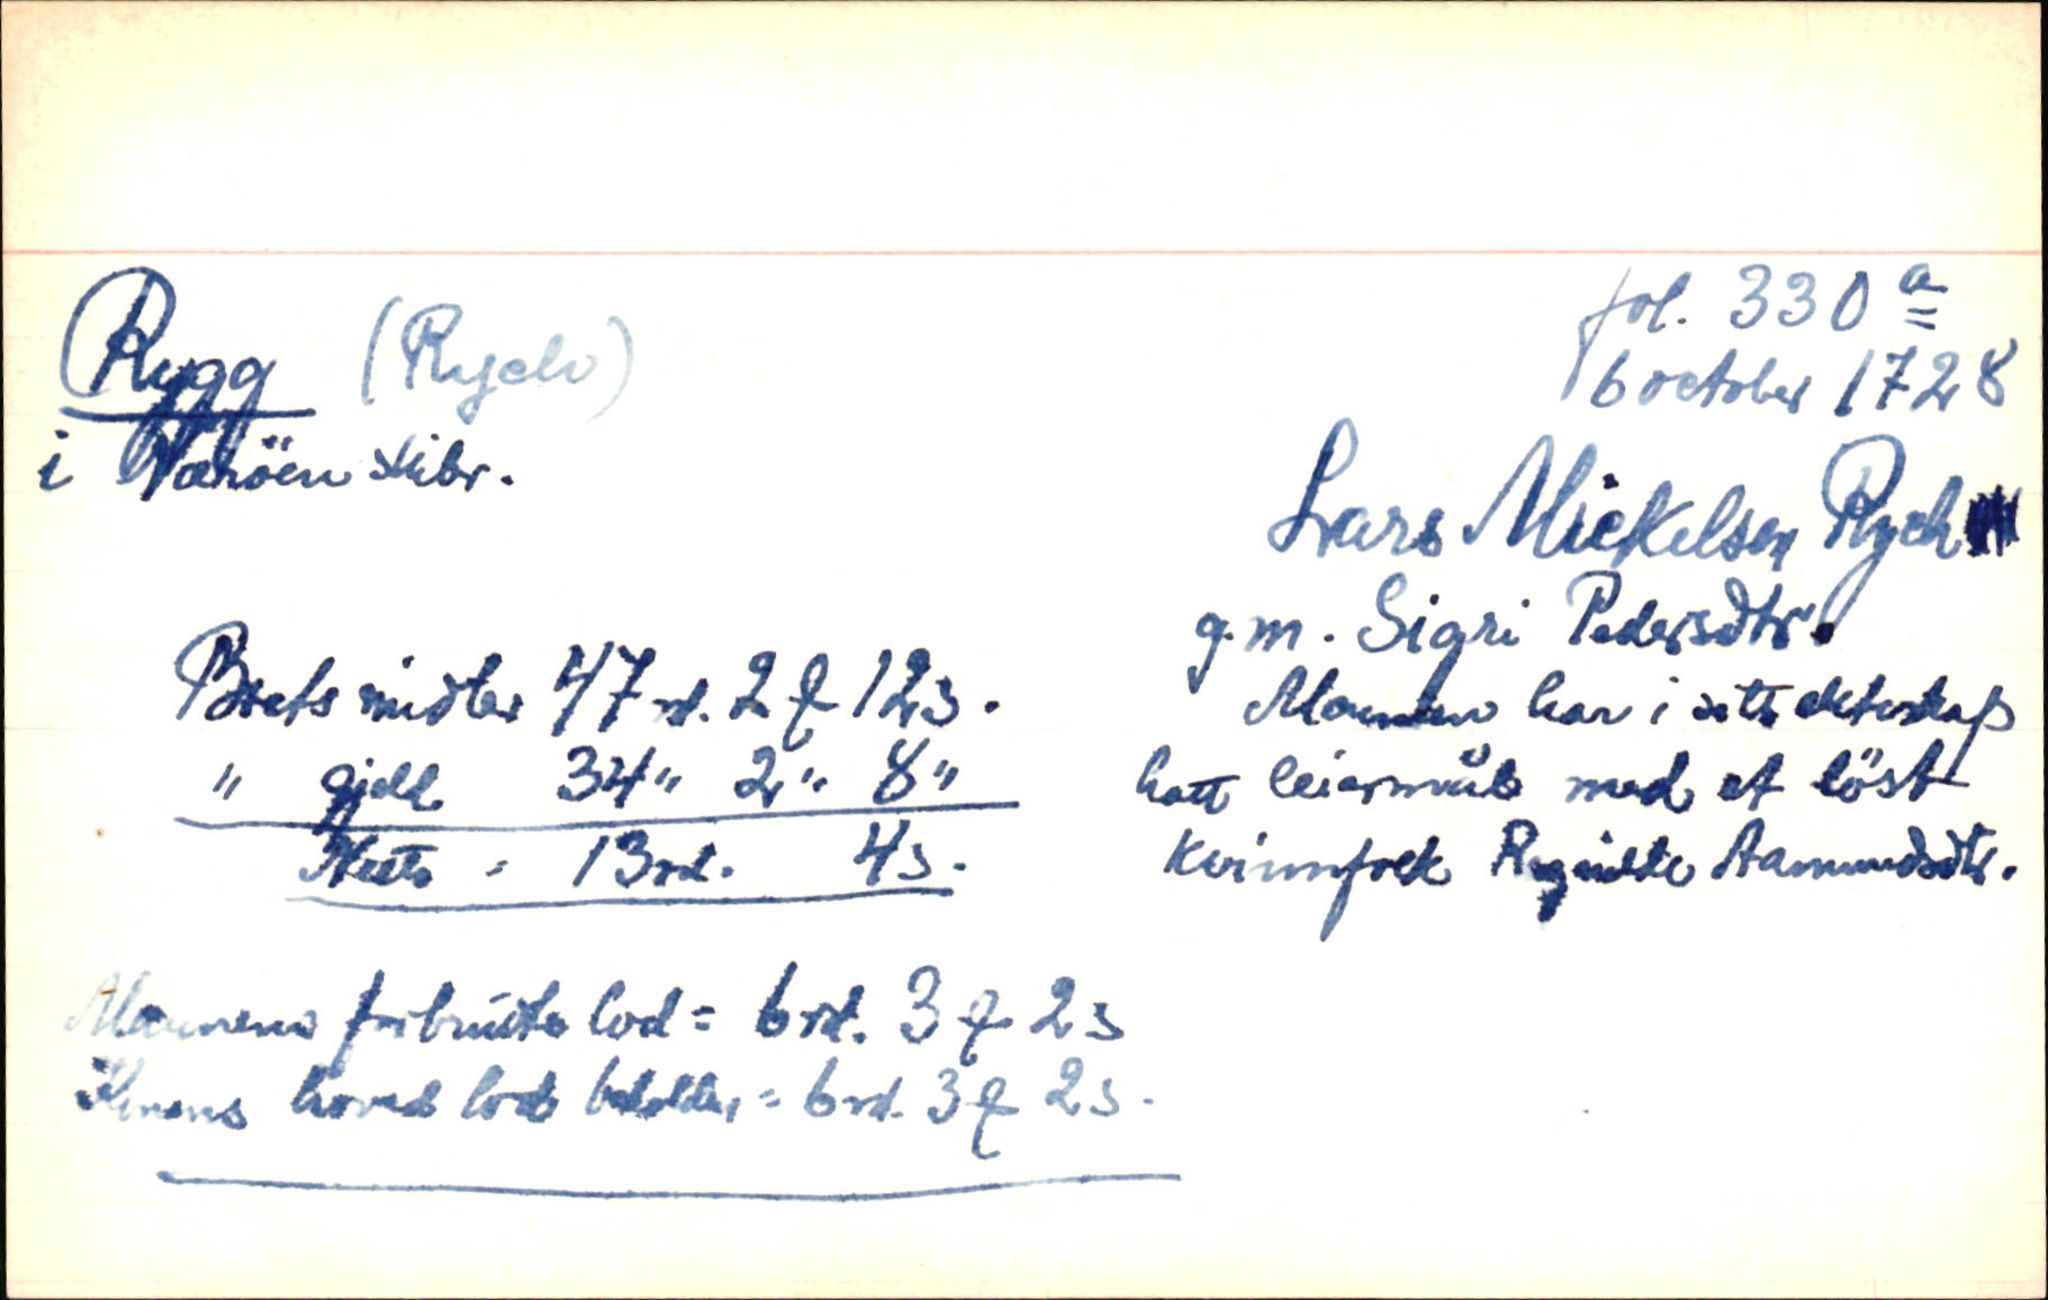 Rygg (Rych)
i Næröen skibr.
fol. 330 a
6 october 1728
Lars Mickelsen Rych
g.m. Sigri Pedersdtr.
Mannen har i sitt ekteskap
hatt leiermål med et löst
kvinnfolk Ragnilde Aamundsdtr.
Boets midler 47 rd. 2 q 12 s.
" gjeld 34 " 2 " 8 "
Netto = 13 rd. 4 s.
Mannens forbrutte lod = 6 rd. 3 q 2 s
Konens hoved lod beholder = 6 rd. 3 q 2 s.